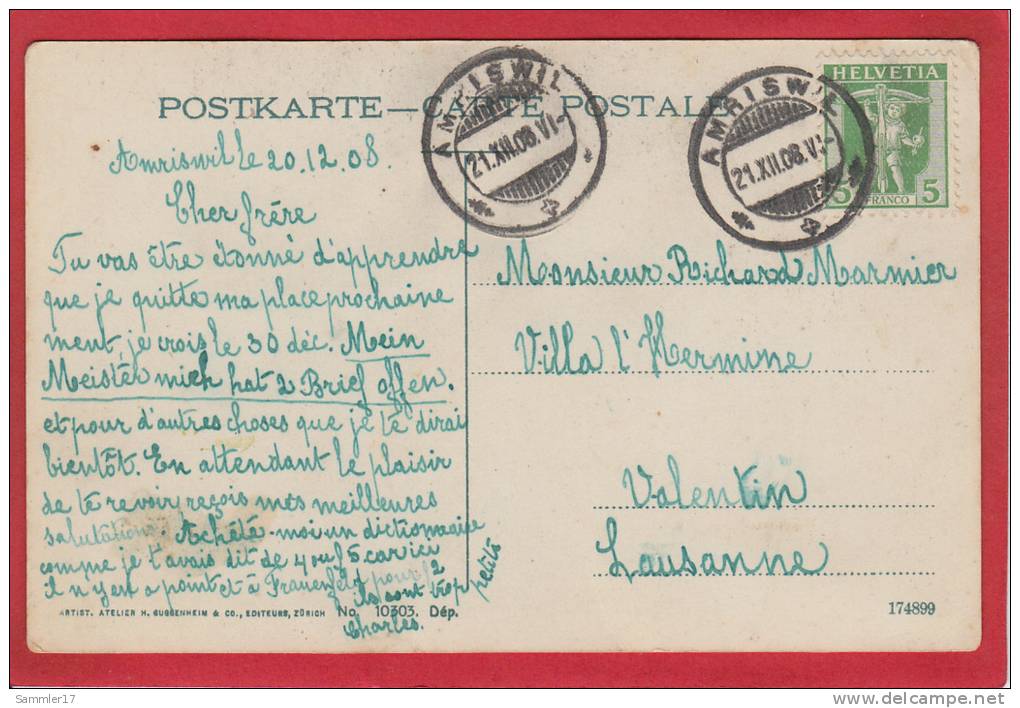 POSTKARTE — CARTE POSTALE
AMRISWIL
21.XII.08.VI-
AMRISWIL
21.XII.08.VI-
HELVETIA
5 5
FRANCO
Amriswil le 20.12.08.
Cher frère
Tu vas être étonné d'apprendre
que je quitte ma place prochaine
ment, je crois le 30 déc. Mein
Meister mich hat 2 Brief offen.
et pour d'autres choses que je te dirai
bientôt. En attendant le plaisir
de te revoir reçois mes meilleures
salutations Achète-moi un dictionnaire
comme je t'avais dit de 4 ou f 5 car ici
il n'y en a point et à Frauenfeld pour f 2
ils sont trop petits
Charles.
Monsieur Richard Marmier
Villa l'Hermine
Valentin
Lausanne
ARTIST. ATELIER H. GUGGENHEIM & CO., EDITEURS, ZÜRICH No. 10303. Dép.
174899
Sammler17
http://www.delcampe.net